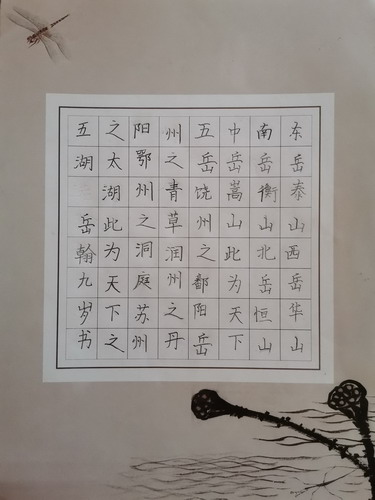 东岳泰山西岳华山
南岳衡山北岳恒山
中岳嵩山此为天下
五岳饶州之鄱阳岳
州之青草润州之丹
阳鄂州之洞庭苏州
之太湖此为天下之
五湖 岳翰九岁书